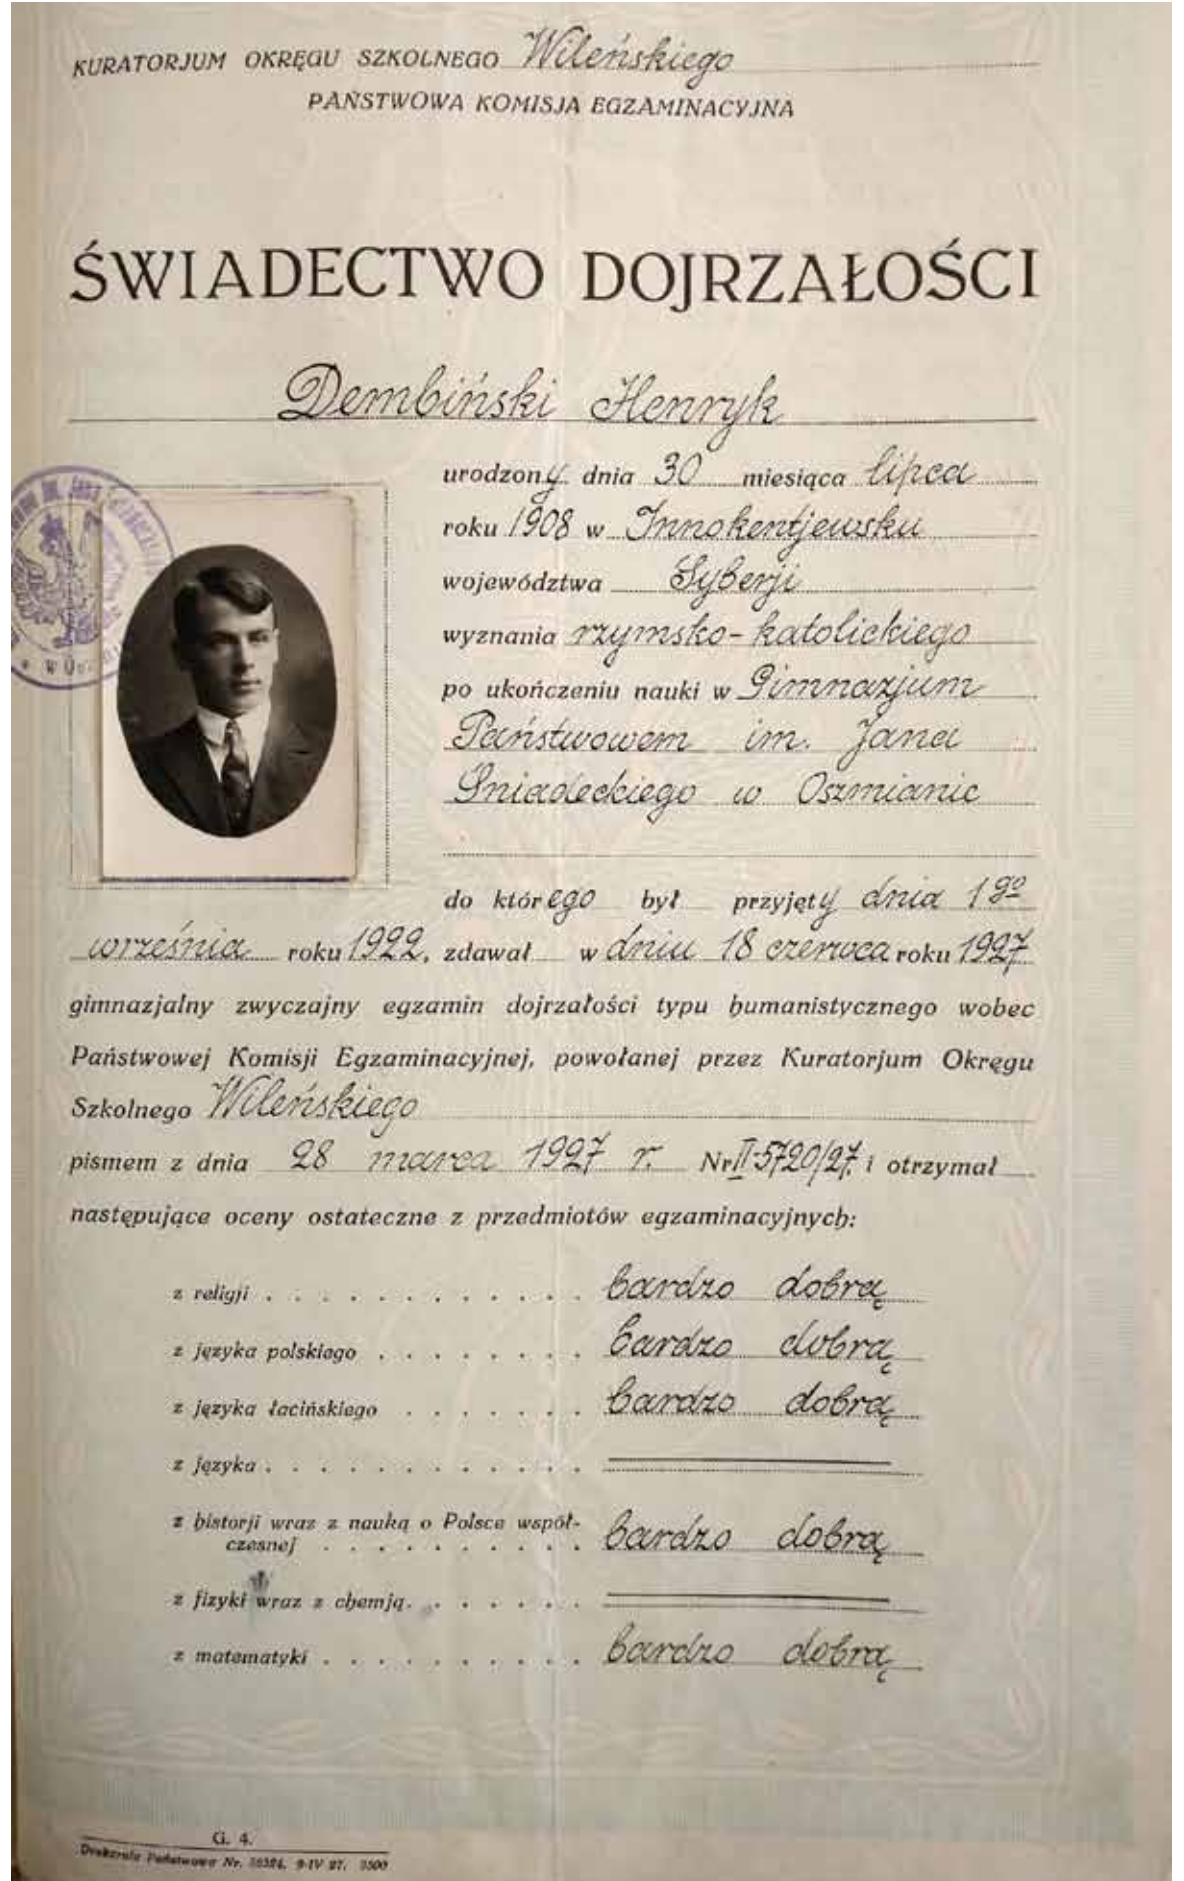 KURATORJUM OKRĘGU SZKOLNEGO Wileńskiego
PAŃSTWOWA KOMISJA EGZAMINACYJNA
ŚWIADECTWO DOJRZAŁOŚCI
Dembiński Henryk
urodzony dnia 30 miesiąca lipca
roku 1908 w Innokentjewsku
województwa Syberji
wyznania rzymsko-katolickiego
po ukończeniu nauki w Gimnazjum
Państwowem im. Jana
Śniadeckiego w Oszmianie
do którego był przyjęty dnia 1go
września roku 1922, zdawał w dniu 18 czerwca roku 1927
gimnazjalny zwyczajny egzamin dojrzałości typu humanistycznego wobec
Państwowej Komisji Egzaminacyjnej, powołanej przez Kuratorjum Okręgu
Szkolnego Wileńskiego
pismem z dnia 28 marca 1927 r. Nr II-5720/27. i otrzymał
następujące oceny ostateczne z przedmiotów egzaminacyjnych:
z religji . . . . . . . . . . . . bardzo dobrą
z języka polskiego . . . . . . . . bardzo dobrą
z języka łacińskiego . . . . . . . bardzo dobrą
z języka . . . . . . . . . . . .
z historji wraz z nauką o Polsce współ-
czesnej . . . . . . . . . . bardzo dobrą
z fizyki wraz z chemją . . . . . . .
z matematyki . . . . . . . . . . bardzo dobrą
G. 4.
Drukarnia Państwowa Nr. 9-IV 27. 3500